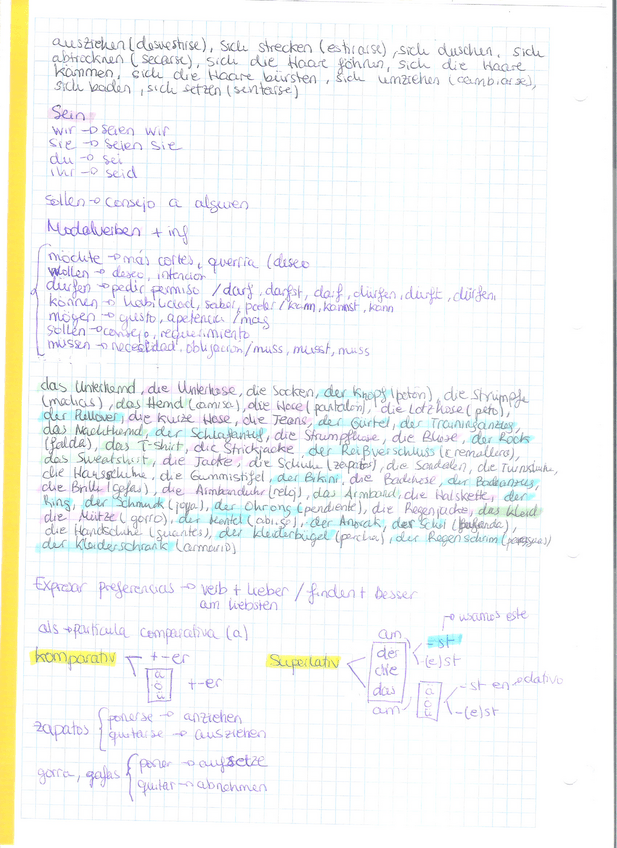 ausziehen (desvestirse), sich strecken (estirarse), sich duschen, sich
abtrocknen (secarse), sich die Haare föhnen, sich die Haare
kämmen, sich die Haare bürsten, sich umziehen (cambiarse),
sich baden, sich setzen (sentarse)
Sein
wir → seien wir
Sie → seien Sie
du → sei
ihr → seid
Sollen → consejo a alguien
Modalverben + inf
möchte → más cortes, querría (deseo
wollen → deseo, intención
dürfen → pedir permiso / darf, darfst, darf, dürfen, dürft, dürfen
können → habilidad, saber, poder / kann, kannst, kann
mögen → gusto, apetencia / mag
sollen → consejo, requerimiento
müssen → necesidad, obligación / muss, musst, muss
das Unterhemd, die Unterhose, die Socken, der Knopf (botón), die Strümpfe
(medias), das Hemd (camisa), die Hose (pantalón), die Latzhose (peto),
der Pullover, die kurze Hose, die Jeans, der Gürtel, der Trainingsanzug,
das Nachthemd, der Schlafanzug, die Strumpfhose, die Bluse, der Rock
(falda), das T-shirt, die Strickjacke, der Reißverschluss (cremallera),
das Sweatshirt, die Jacke, die Schuhe (zapatos), die Sandalen, die Turnschuhe,
die Hausschuhe, die Gummistiefel, der Bikini, die Badehose, der Badeanzug,
die Brille (gafas), die Armbanduhr (reloj), das Armband, die Halskette, der
Ring, der Schmuck (joya), der Ohrring (pendiente), die Regenjacke, das Kleid
die Mütze (gorro), der Mantel (abrigo), der Anorak, der Schal
die Handschuhe (guantes), der Kleiderbügel (percha), der Regenschirm (paraguas)
der Kleiderschrank (armario)
Expresar preferencias → verb + lieber / finden + besser
am liebsten
als → partícula comparativa (a)
Komparativ + -er
ä ö ü + -er
Superlativ am der die das -st -(e)st → usamos este
am ä ö ü -st en → dativo -(e)st
zapatos { ponerse → anziehen
quitarse → ausziehen
gorra, gafas { poner → aufsetze
quitar → abnehmen